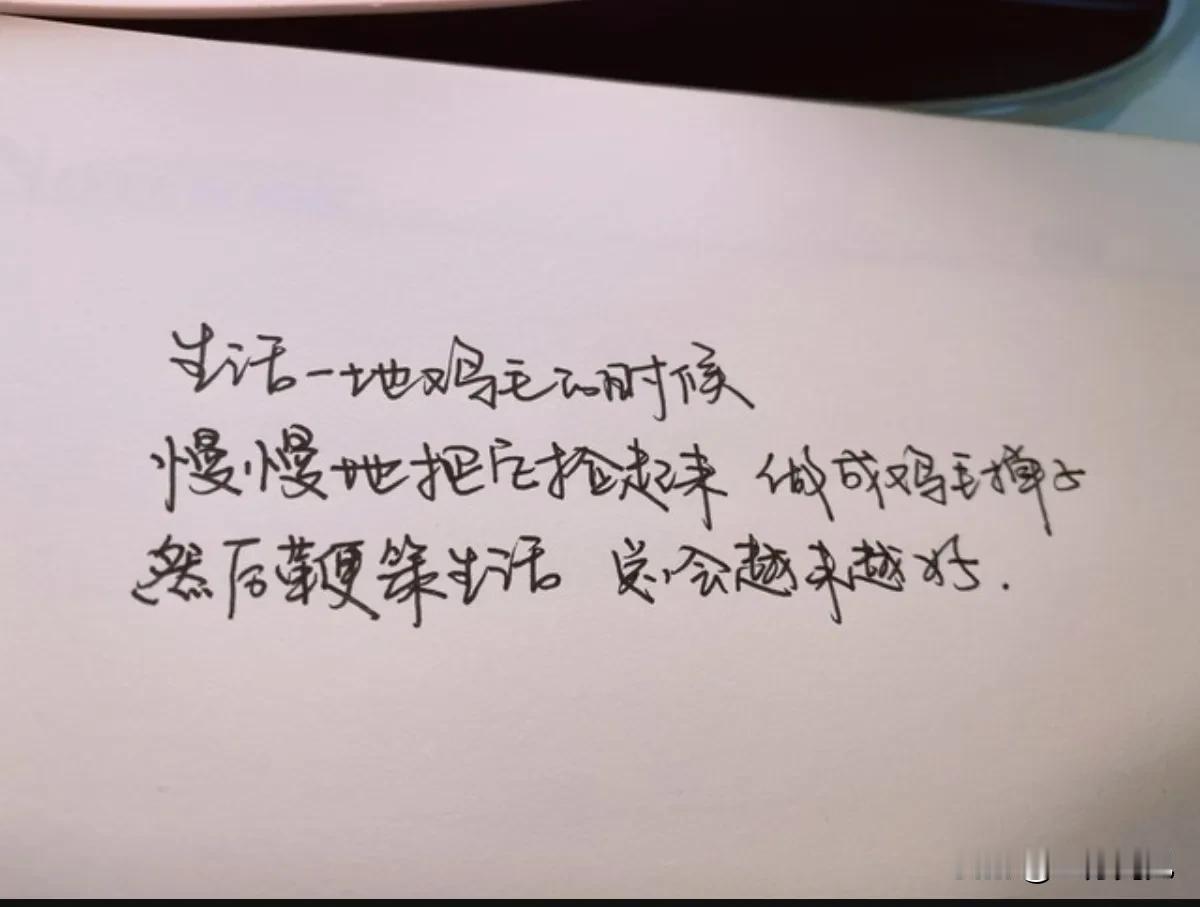 生活一地鸡毛的时候
慢慢地把它捡起来 做成鸡毛掸子
然后鞭策生活 总会越来越好.